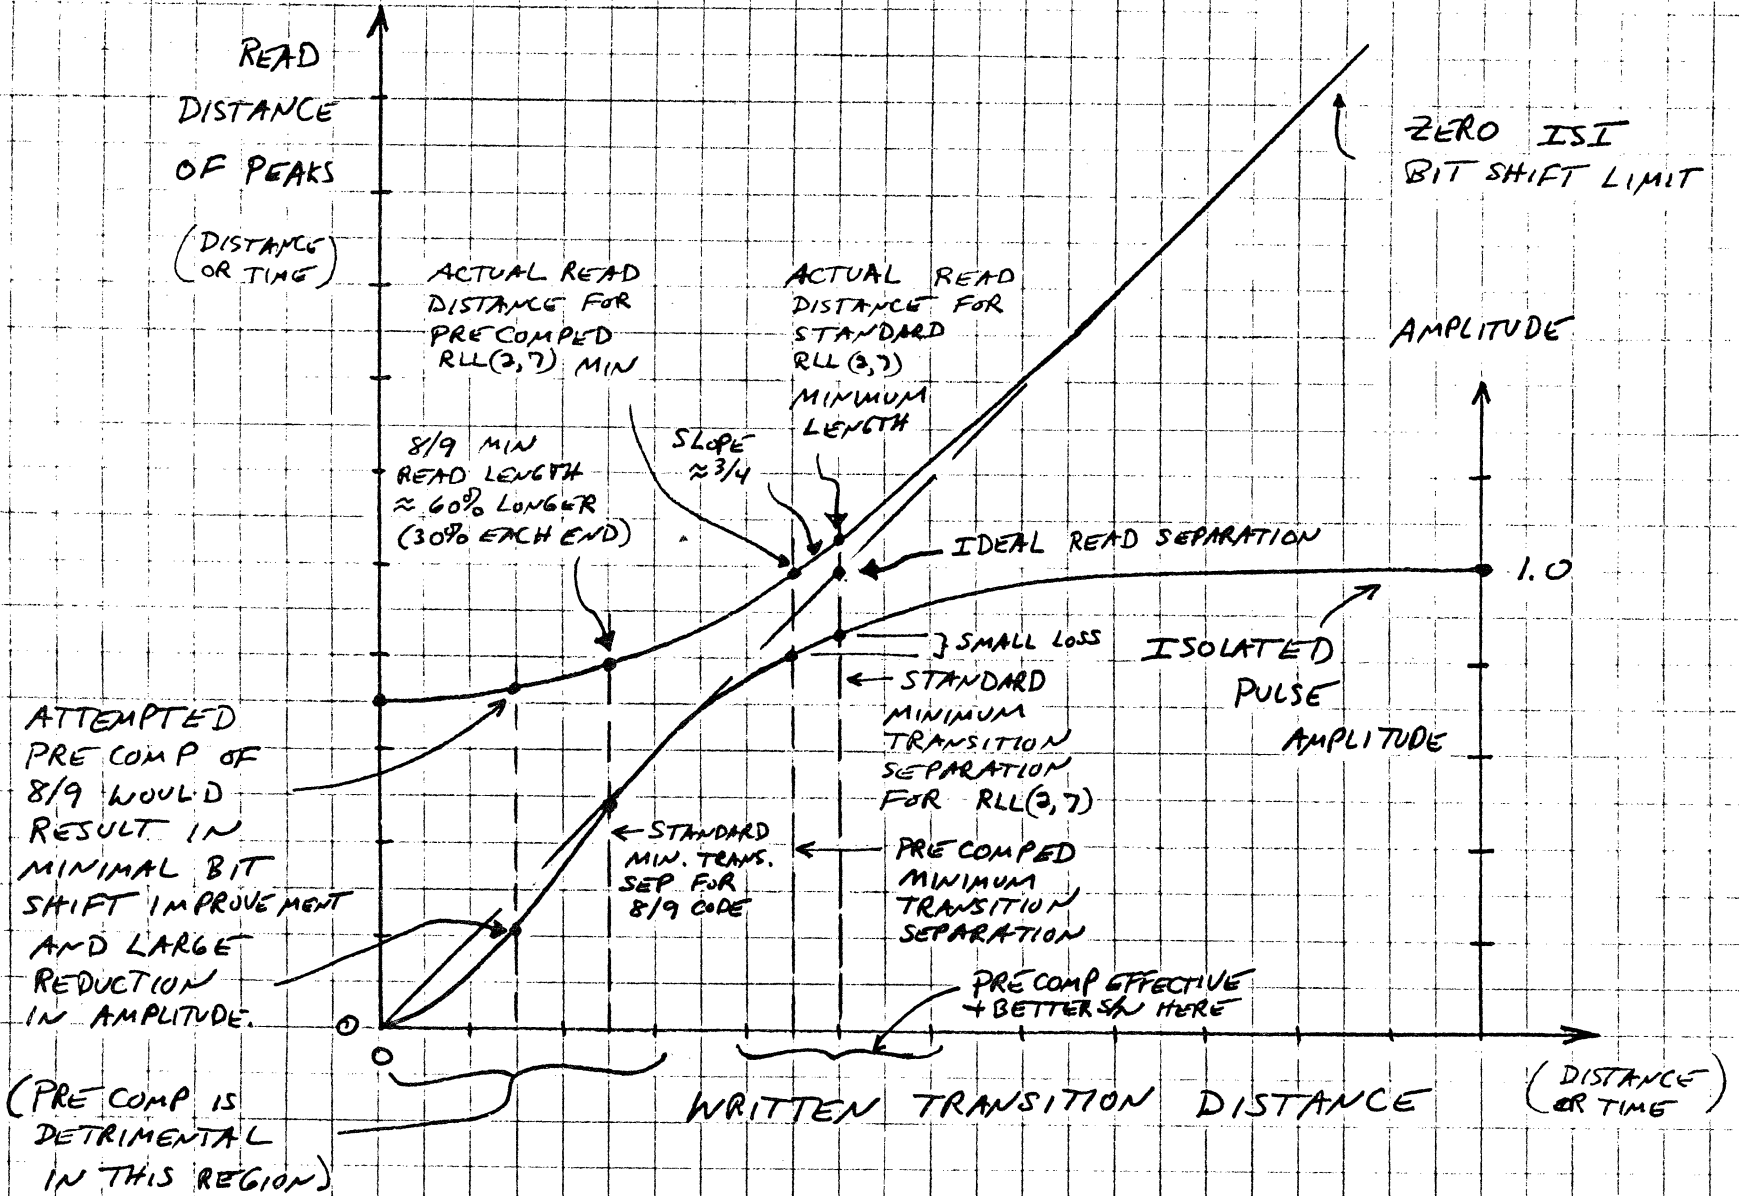 READ
DISTANCE
OF PEAKS
(DISTANCE
OR TIME)
ZERO ISI
BIT SHIFT LIMIT
ACTUAL READ
DISTANCE FOR
PRECOMPED
RLL(2,7) MIN
ACTUAL READ
DISTANCE FOR
STANDARD
RLL(2,7)
MINIMUM
LENGTH
AMPLITUDE
8/9 MIN
READ LENGTH
≈ 60% LONGER
(30% EACH END)
SLOPE
≈ 3/4
IDEAL READ SEPARATION
1.0
} SMALL LOSS
ISOLATED
PULSE
AMPLITUDE
← STANDARD
MINIMUM
TRANSITION
SEPARATION
FOR RLL(2,7)
ATTEMPTED
PRE COMP OF
8/9 WOULD
RESULT IN
MINIMAL BIT
SHIFT IMPROVEMENT
AND LARGE
REDUCTION
IN AMPLITUDE.
← STANDARD
MIN. TRANS.
SEP FOR
8/9 CODE
← PRE COMPED
MINIMUM
TRANSITION
SEPARATION
PRE COMP EFFECTIVE
+ BETTER S/N HERE
0
0
(PRE COMP IS
DETRIMENTAL
IN THIS REGION)
WRITTEN TRANSITION DISTANCE
(DISTANCE
OR TIME)